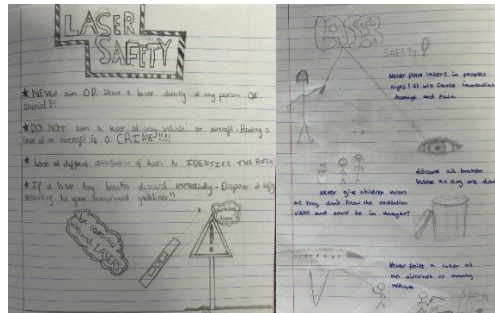 LASER
SAFETY
★ NEVER aim OR shine a laser directly at any person OR
animal!!!
★ DO NOT aim a laser at any vehicle or aircraft. Pointing a
laser at an aircraft is a CRIME!!!!!
★ Look at different of lasers to IDENTIFY THE RISK
★ If a laser toy breaks discard immediately. Dispose it
according to your guidelines!!
Be
around LASERS
LASERS
SAFETY!
Never point lasers in peoples
eyes! It will cause immediate
damage and pain.
discard all broken
lasers as they are
Never give children lasers
as they don't know the
and could be in danger!
Never point a laser at
an aircraft or moving
vehicle